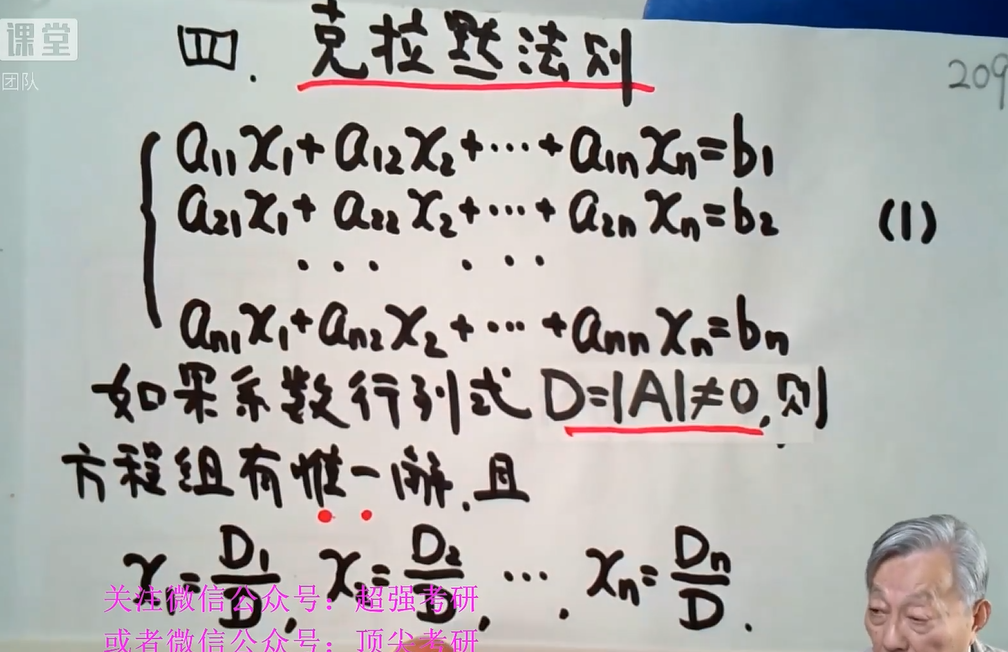 课堂
团队
四. 克拉默法则
209
a₁₁x₁+a₁₂x₂+⋯+a₁ₙxₙ=b₁
a₂₁x₁+a₂₂x₂+⋯+a₂ₙxₙ=b₂ (1)
⋯ ⋯
aₙ₁x₁+aₙ₂x₂+⋯+aₙₙxₙ=bₙ
如果系数行列式 D=|A|≠0,则
方程组有惟一解,且
x₁=D₁/D, x₂=D₂/D, ⋯, xₙ=Dₙ/D.
关注微信公众号：超强考研
或者微信公众号：顶尖考研